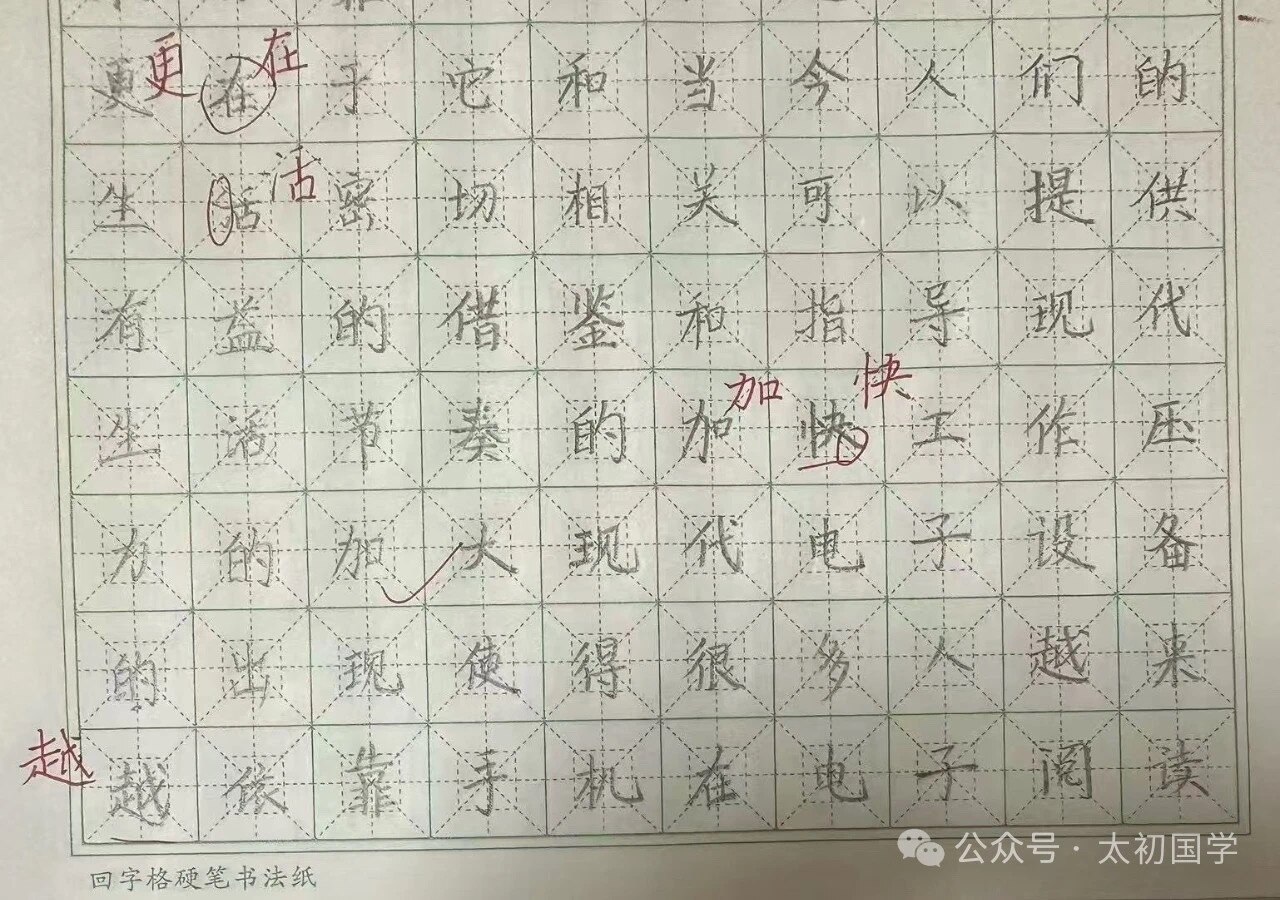 更在于它和当今人们的
生活密切相关可以提供
有益的借鉴和指导现代
生活节奏的加快工作压
力的加大现代电子设备
的出现使得很多人越来
越依靠手机在电子阅读
更 在
活
加 快
越
回字格硬笔书法纸
公众号 · 太初国学